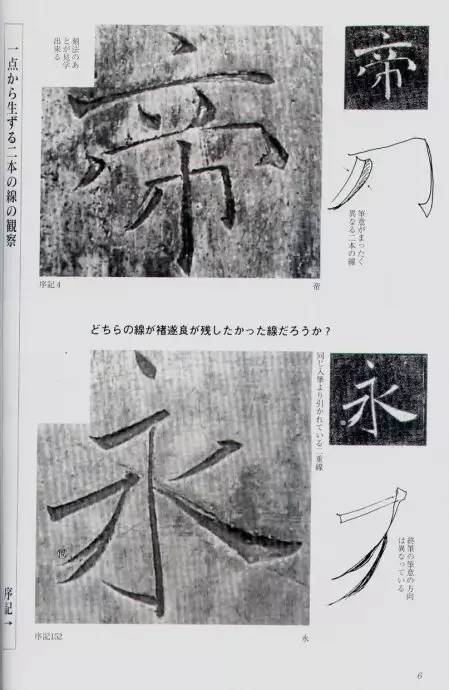 一点から生ずる二本の線の観察
序記→
刻法のあ
とが見学
出来る
帝
帝
筆意がまったく
異なる二本の線
序記4
帝
どちらの線が褚遂良が残したかった線だろうか？
永
同じ入筆より引かれている二重線
永
終筆の筆意の方向
は異なっている
序記152
永
6